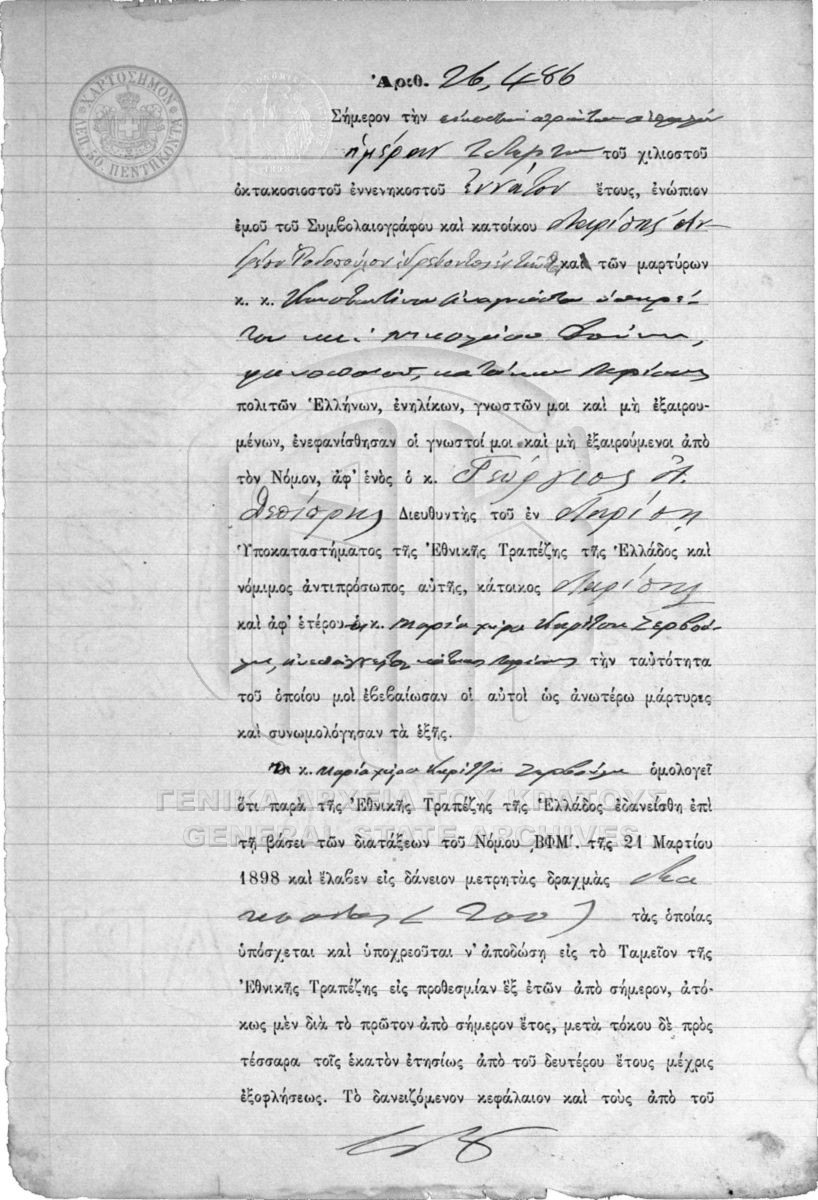 ΧΑΡΤΟΣΗΜΟΝ
ΛΕΠ. 50. ΠΕΝΤΗΚΟΝΤΑ
Ἀριθ. 26,486
Σήμερον τὴν
ἡμέραν Τετάρτην τοῦ χιλιοστοῦ
ὀκτακοσιοστοῦ ἐννενηκοστοῦ ἐννάτου ἔτους, ἐνώπιον
ἐμοῦ τοῦ Συμβολαιογράφου καὶ κατοίκου Λαρίσης Ἀν-
δρέου Ροδοπούλου ἑδρεύοντος ἐνταῦθα καὶ τῶν μαρτύρων
κ. κ. Κωσταντίνου Ἀναγνώστου ὑπηρέ-
του καὶ Νικολάου
φανοποιοῦ, κατοίκων Λαρίσης
πολιτῶν Ἑλλήνων, ἐνηλίκων, γνωστῶν μοι καὶ μὴ ἐξαιρου-
μένων, ἐνεφανίσθησαν οἱ γνωστοί μοι καὶ μὴ ἐξαιρούμενοι ἀπὸ
τὸν Νόμον, ἀφ' ἑνὸς ὁ κ. Γεώργιος Ἀ.
Διευθυντὴς τοῦ ἐν Λαρίσῃ
Ὑποκαταστήματος τῆς Ἐθνικῆς Τραπέζης τῆς Ἑλλάδος καὶ
νόμιμος ἀντιπρόσωπος αὐτῆς, κάτοικος Λαρίσης
καὶ ἀφ' ἑτέρου ἡ κ. Μαρία χήρα Ζερβού-
λη, ἀνεπάγγελτος κάτοικος Λαρίσης τὴν ταὐτότητα
τοῦ ὁποίου μοὶ ἐβεβαίωσαν οἱ αὐτοὶ ὡς ἀνωτέρω μάρτυρες
καὶ συνωμολόγησαν τὰ ἑξῆς.
Ἡ κ. Μαρία χήρα Ζερβούλη ὁμολογεῖ
ΓΕΝΙΚΑ ΑΡΧΕΙΑ ΤΟΥ ΚΡΑΤΟΥΣ
ὅτι παρὰ τῆς Ἐθνικῆς Τραπέζης τῆς Ἑλλάδος ἐδανείσθη ἐπὶ
GENERAL STATE ARCHIVES
τῇ βάσει τῶν διατάξεων τοῦ Νόμου ͵ΒΦΜ'. τῆς 21 Μαρτίου
1898 καὶ ἔλαβεν εἰς δάνειον μετρητὰς δραχμὰς δια
κοσίας ( 200 ) τὰς ὁποίας
ὑπόσχεται καὶ ὑποχρεοῦται ν' ἀποδώσῃ εἰς τὸ Ταμεῖον τῆς
Ἐθνικῆς Τραπέζης εἰς προθεσμίαν ἓξ ἐτῶν ἀπὸ σήμερον, ἀτό-
κως μὲν διὰ τὸ πρῶτον ἀπὸ σήμερον ἔτος, μετὰ τόκου δὲ πρὸς
τέσσαρα τοῖς ἑκατὸν ἐτησίως ἀπὸ τοῦ δευτέρου ἔτους μέχρις
ἐξοφλήσεως. Τὸ δανειζόμενον κεφάλαιον καὶ τοὺς ἀπὸ τοῦ